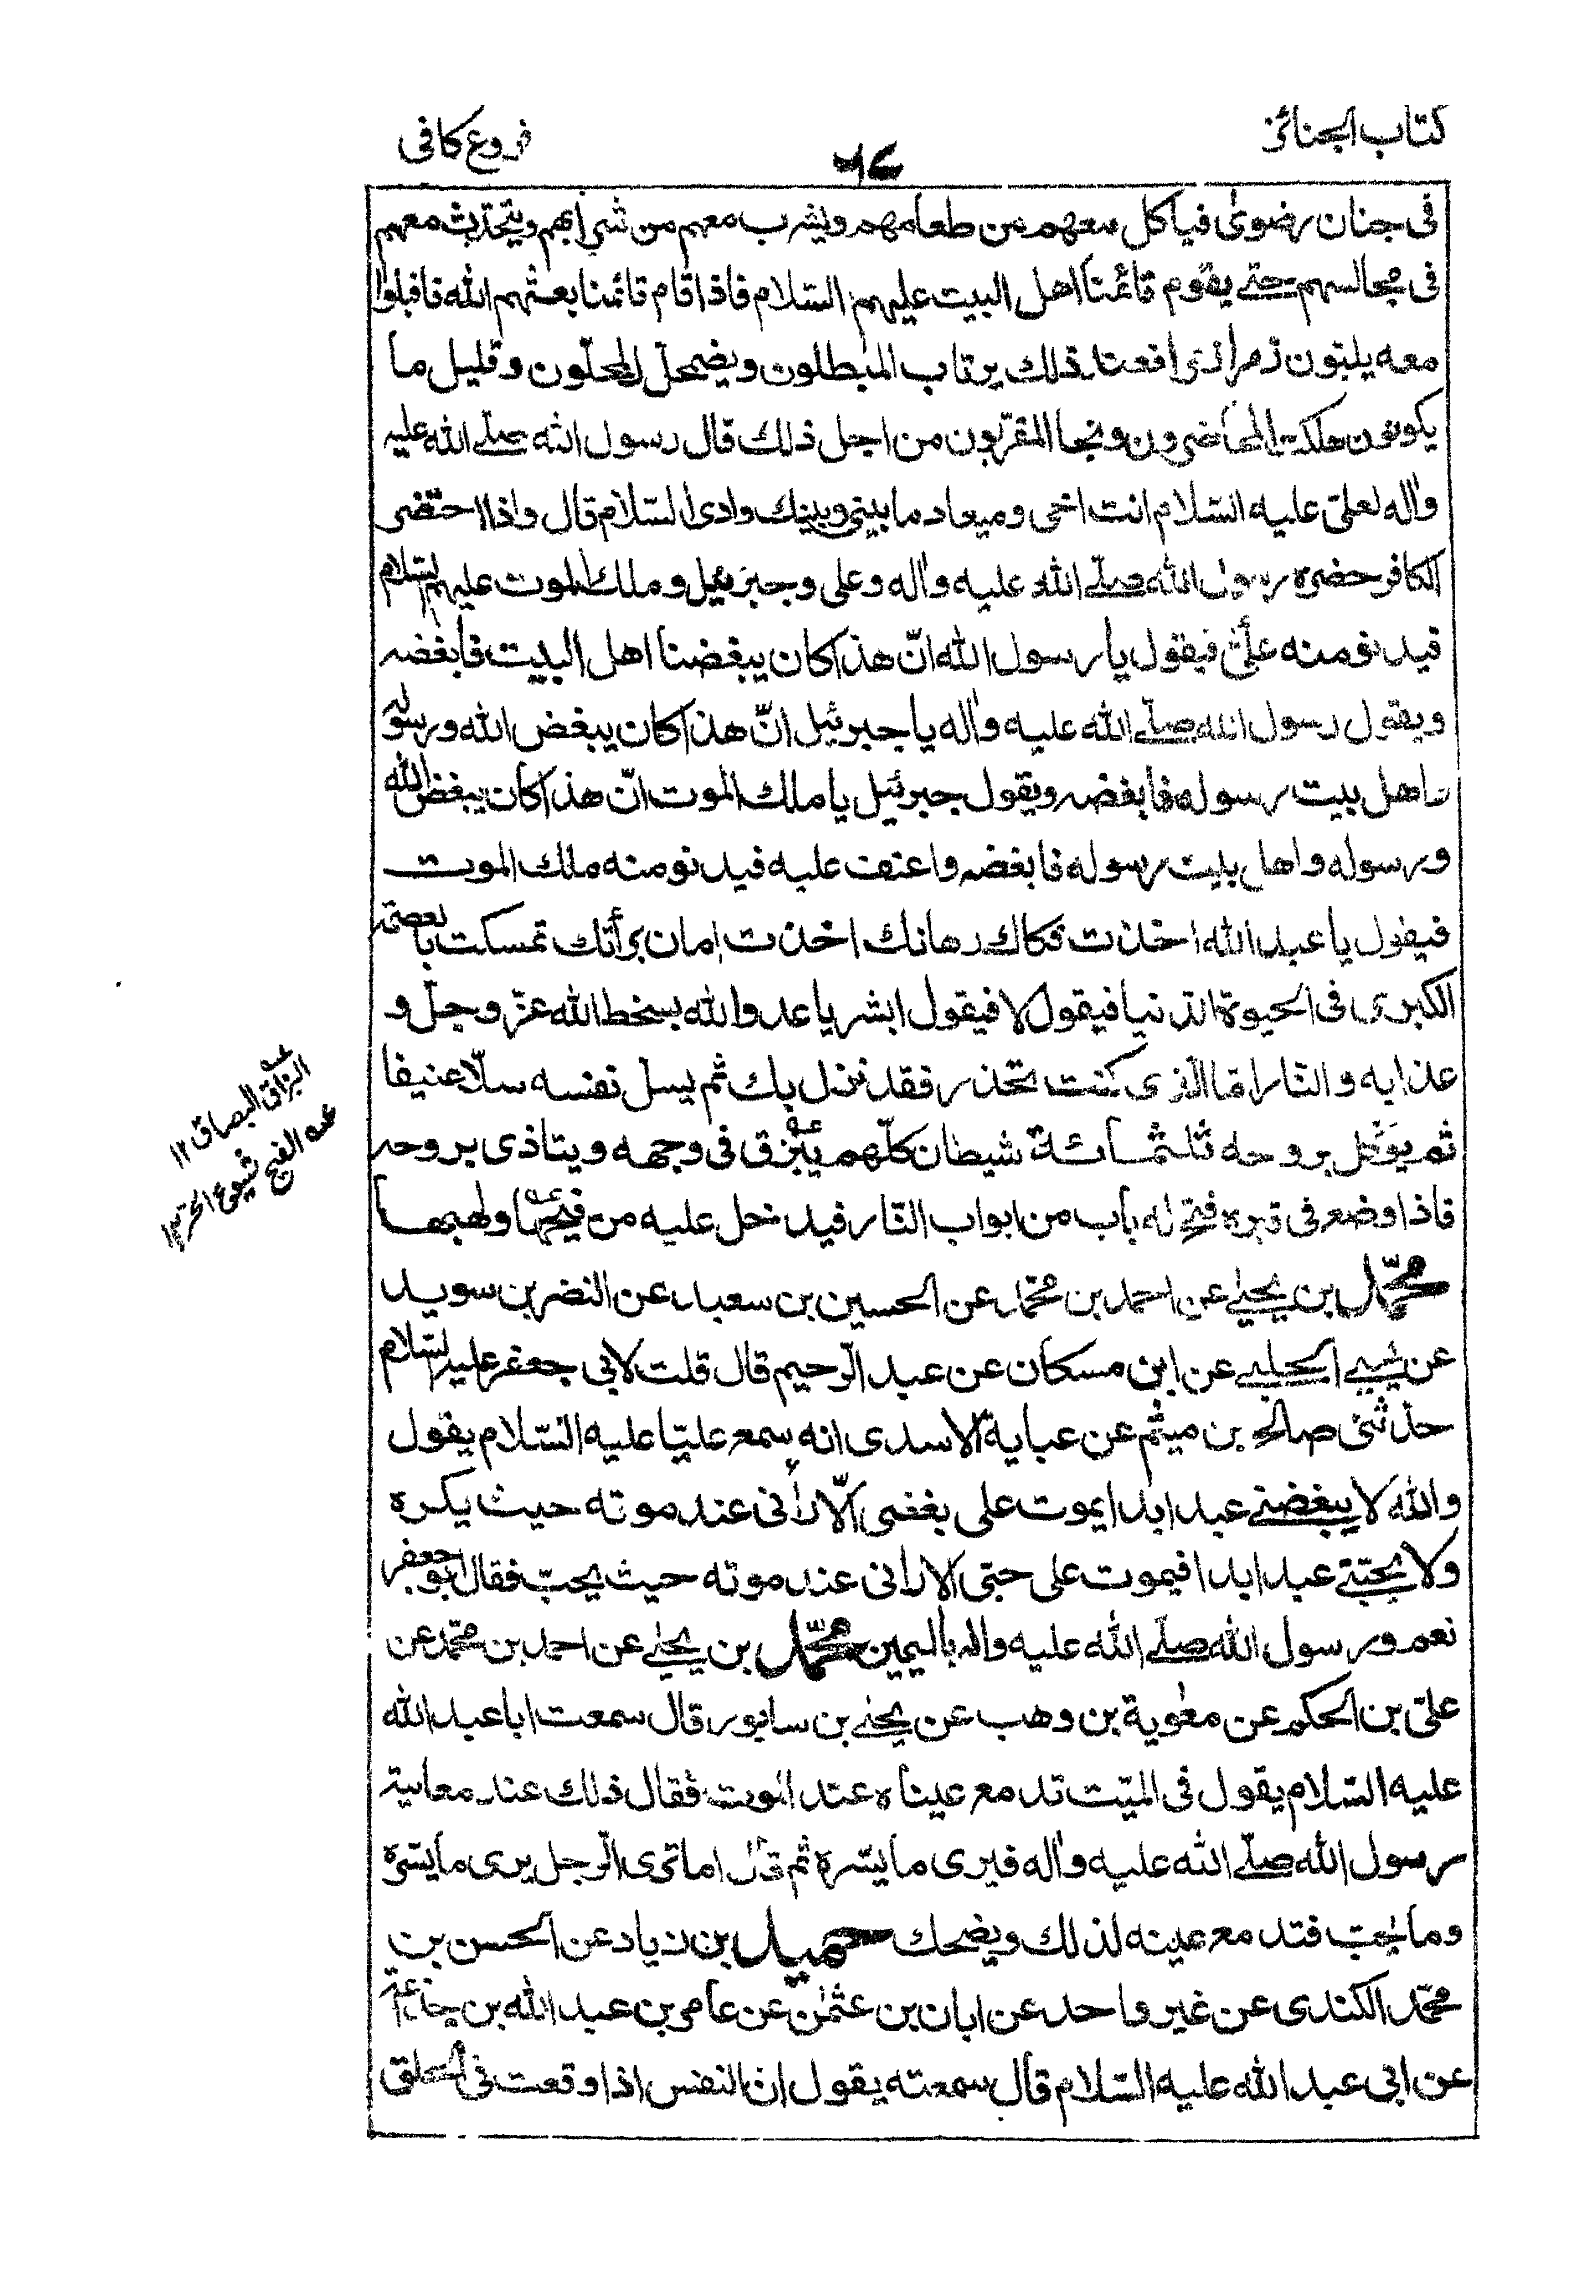 كتاب الجنائز
فروع كافى
فى جنان رضوى فياكل معهم من طعامهم ويشرب معهم من شرابهم ويتحدث معهم
فى مجالسهم حتى يقوم قائمنا اهل البيت عليهم السلام فاذا قام قائمنا بعثهم الله فاقبلوا
معه يلبون زمرا زمرا فعند ذلك يرتاب المبطلون ويضمحل المحلّون وقليل ما
يكونون هلكت المحاضرون ونجا المقربون من اجل ذلك قال رسول الله صلى الله عليه
واله لعلى عليه السلام انت اخى وميعاد ما بينى وبينك وادى السلام قال واذا احتضر
الكافر حضره رسول الله صلى الله عليه واله وعلى وجبرئيل وملك الموت عليهم السلام
فيدنو منه علىّ فيقول يا رسول الله انّ هذا كان يبغضنا اهل البيت فابغضه
ويقول رسول الله صلى الله عليه واله يا جبرئيل انّ هذا كان يبغض الله ورسوله
واهل بيت رسوله فابغضه ويقول جبرئيل يا ملك الموت انّ هذا كان يبغض الله
ورسوله واهل بيت رسوله فابغضه واعنف عليه فيدنو منه ملك الموت
فيقول يا عبد الله اخذت فكاك رهانك اخذت امان برأتك تمسكت بالعصمة
الكبرى فى الحيوة الدنيا فيقول لا فيقول ابشر يا عدو الله بسخط الله عزّ وجلّ و
عذابه والنار امّا الذى كنت تحذر فقد نزل بك ثم يسل نفسه سلّا عنيفا
ثم يوكّل بروحه ثلثمائة شيطان كلّهم يبزق فى وجهه ويتاذى بروحه
فاذا وضع فى قبره فتح له باب من ابواب النار فيدخل عليه من فيحها ولهبها
محمّد بن يحيى عن احمد بن محمّد عن الحسين بن سعيد عن النضر بن سويد
عن يحيى الحلبى عن ابن مسكان عن عبد الرحيم قال قلت لابى جعفر عليه السلام
حدثنى صالح بن ميثم عن عباية الاسدى انه سمع عليّا عليه السّلام يقول
والله لا يبغضنى عبد ابدا يموت على بغضى الّا رأنى عند موته حيث يكره
ولا يحبّنى عبد ابدا فيموت على حبى الا رانى عند موته حيث يحبّ فقال ابو جعفر
نعم ورسول الله صلى الله عليه واله باليمين محمّد بن يحيى عن احمد بن محمّد عن
علىّ بن الحكم عن معوية بن وهب عن يحيى بن سابور قال سمعت ابا عبد الله
عليه السّلام يقول فى الميّت تدمع عيناه عند الموت فقال ذلك عند معاينة
رسول الله صلى الله عليه واله فيرى ما يسّره ثم قال اما ترى الرجل يرى ما يسّره
وما يحبّ فتدمع عينه لذلك ويضحك حميد بن زياد عن الحسن بن
محمّد الكندى عن غير واحد عن ابان بن عثمن عن عامر بن عبد الله بن جذاعة
عن ابى عبد الله عليه السّلام قال سمعته يقول ان النفس اذا وقعت فى الحلق
البزاق البصاق ١٢
الفيح شيوع الحرّ ١٢